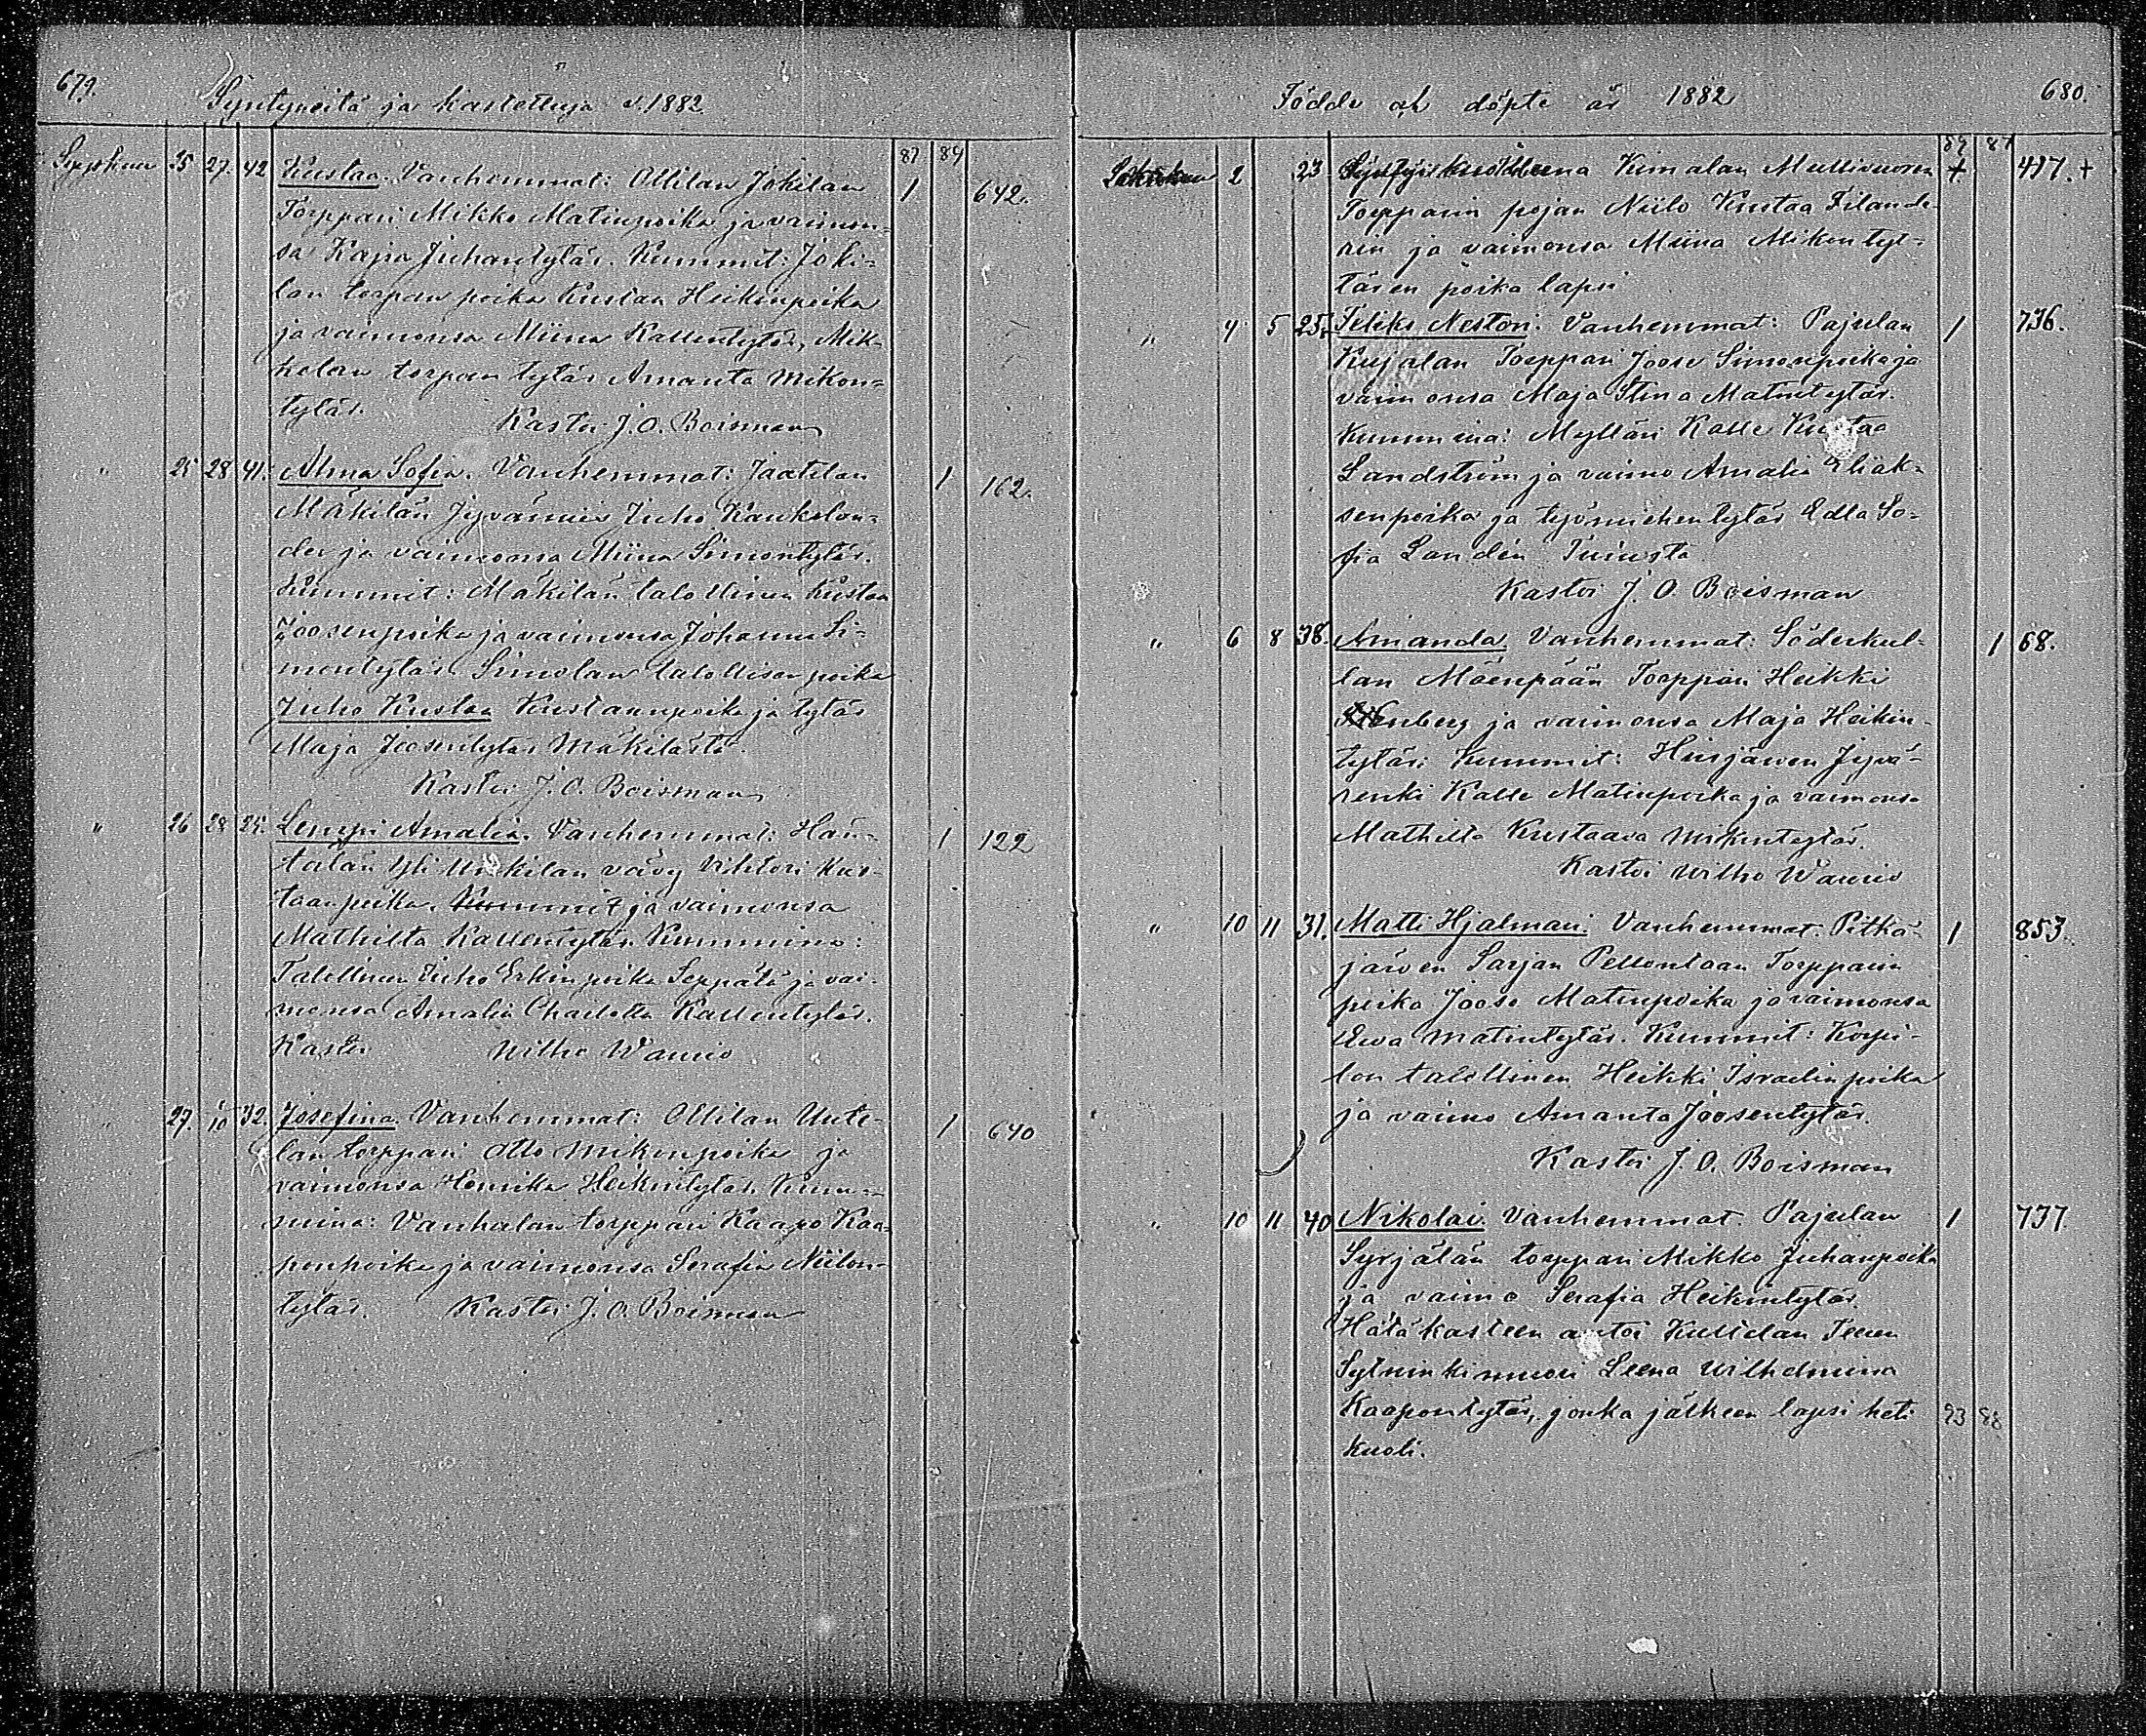 679.
Syntyneitä ja kastettuja v. 1882.
87 89
Syyskuu 25 27. 42 Kustaa. Vanhemmat: Ollilan Jokilan 1 642.
Torppari Mikko Matinpoika ja vaimon-
sa Kajsa Juhantytär. Kummit: Joki-
lan torpan poika Kustaa Heikinpoika
ja vaimonsa Miina Kallentytär, Mik-
kolan torpan tytär Amanta Mikon-
tytär. Kastoi J. O. Boisman
" 25 28 41. Alma Sofia. Vanhemmat: Jaatilan 1 162.
Mäkilän Jyvämies Juho Kaukolan-
der ja vaimonsa Miina Simontytär.
Kummit: Mäkilän talollinen Kustaa
Joosenpoika ja vaimonsa Johanna Si-
montytär Simolan talollisen poika
Juho Kustaa Kustaanpoika ja tytär
Maja Joosentytär Mäkilästä.
Kastoi J. O. Boisman
" 26 28 25. Lempi Amalia. Vanhemmat: Han- 1 122
talan Yli vävy Vihtori Kus-
taanpoika. Kummit ja vaimonsa
Mathilta Kallentytär. Kummina:
Talollinen Juho Erkinpoika Seppälä ja vai-
monsa Amalia Charlotta Kallentytär.
Kastoi Wilho Waurio
" 27. 1/10 32. Josefina. Vanhemmat: Ollilan Uute- 1 640
lan torppari Otto Mikonpoika ja
vaimonsa Henrika Heikintytär. Kum-
mina: Vanhalan torppari Kaapo Kaa-
ponpoika ja vaimonsa Serafia Niilon-
tytär. Kastoi J. O. Boisman
Födde och döpte år 1882 680.
89 87
Lokakuu 2 23 Kimalan Mullivuoren + 417. +
Torpparin pojan Niilo Kustaa Filande-
rin ja vaimonsa Miina Mikontyt-
tären poika lapsi
" 4 5 25. Feliks Nestori. Vanhemmat: Pajulan 1 736.
Kujalan Torppari Joose Simonpoika ja
vaimonsa Maja Stina Matintytär.
Kummina: Mylläri Kalle Kustaa
Landström ja vaimo Amalia Eliak-
senpoika ja työmiehentytär Edla So-
fia Landén
Kastoi J. O. Boisman
" 6 8 38. Amanda. Vanhemmat: Söderkul- 1 68.
lan Mäenpään Torppari Heikki
ja vaimonsa Maja Heikin-
tytär. Kummit: Hirsjärven Jyvä-
renki Kalle Matinpoika ja vaimonsa
Mathilta Kustaava Mikintytär.
Kastoi Wilho Waurio
" 10 11 31. Matti Hjalmari. Vanhemmat. Pitkä- 1 853.
järven Sarjan Pellontaan Torpparin
poika Joose Matinpoika ja vaimonsa
Ewa Matintytär. Kummit: Korpi-
lan talollinen Heikki Israelinpoika
ja vaimo Amanta Joosentytär.
Kastoi J. O. Boisman
" 10 11 40 Nikolai. Vanhemmat. Pajulan 1 737.
Syrjälän torppari Mikko Juhanpoika
ja vaimo Serafia Heikintytär.
Hätäkasteen antoi Kulidan
Leena Wilhelmina
Kaapontytär, jonka jälkeen lapsi heti 93 88
kuoli.